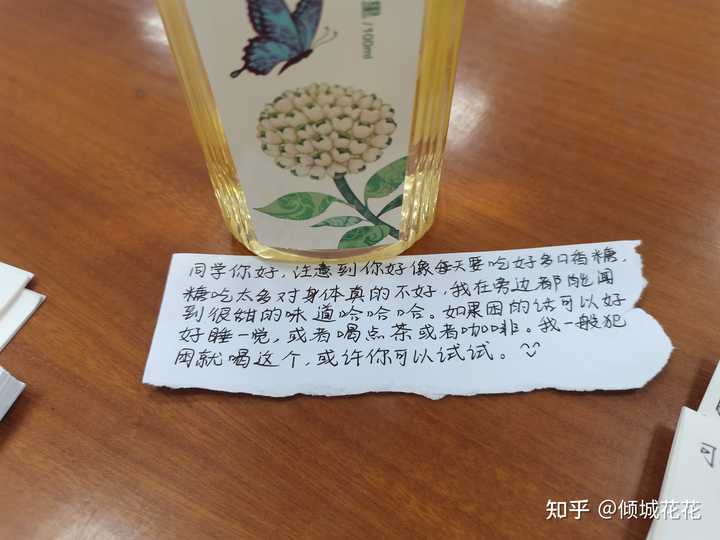 里/100ml
同学你好，注意到你好像每天要吃好多口香糖，
糖吃太多对身体真的不好，我在旁边都能闻
到很甜的味道哈哈哈。如果困的话可以好
好睡一觉，或者喝点茶或者咖啡。我一般犯
困就喝这个，或许你可以试试。
可
知乎 @倾城花花